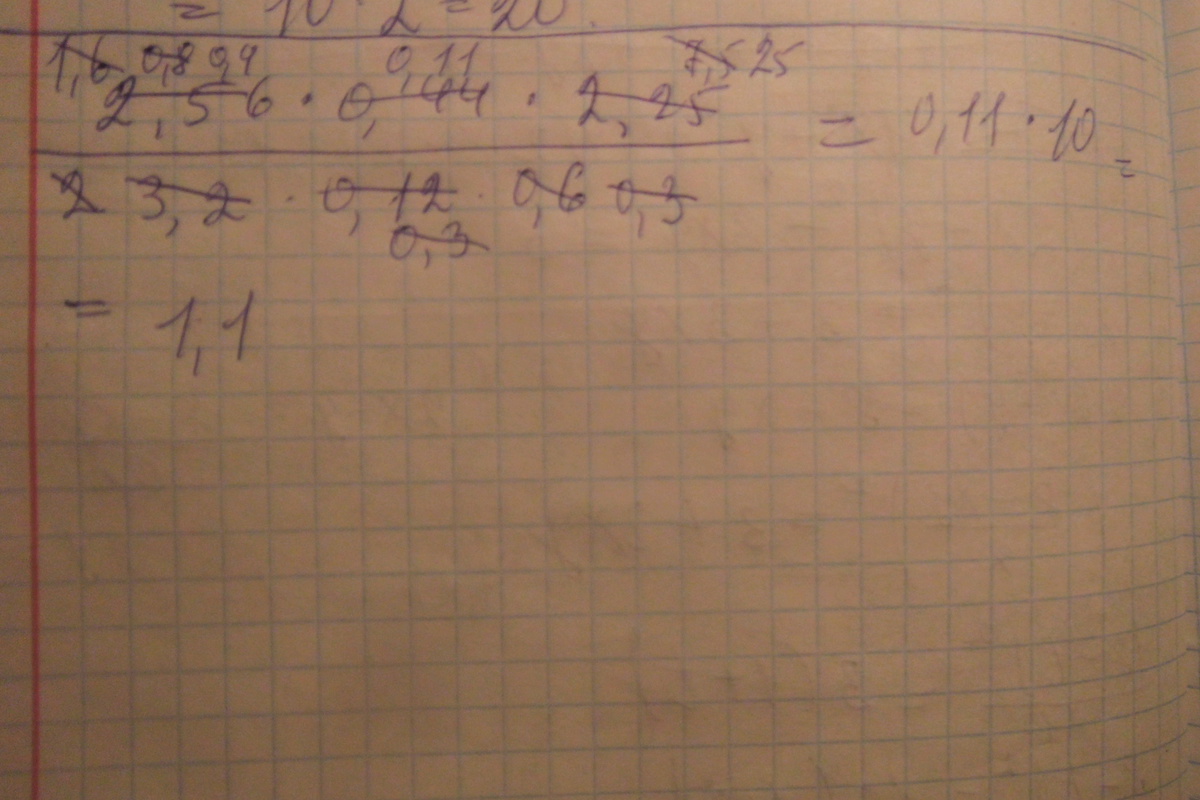 = 10 · 2 = 20.
1,6 0,8 0,4 0,11 7,5 25
2,56 · 0,44 · 2,25
= 0,11 · 10 =
2 3,2 · 0,12 · 0,6 0,3
0,3
= 1,1